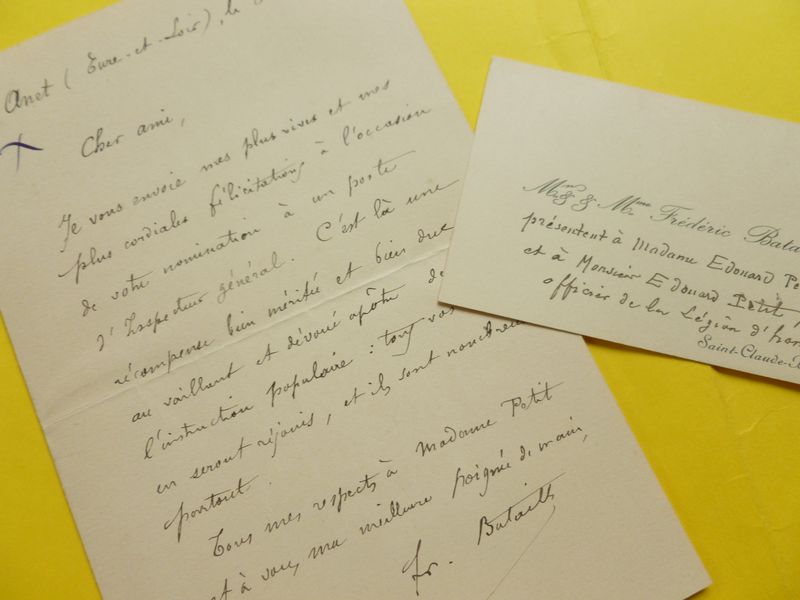 Anet (Eure-et-Loir), le
Cher ami,
Je vous envoie mes plus vives et mes
plus cordiales félicitations à l'occasion
de votre nomination à un poste
d'Inspecteur général. C'est là une
récompense bien méritée et bien due
au vaillant et dévoué apôtre de
l'instruction populaire : tous vos
en seront réjouis, et ils sont nombreux
partout.
Tous mes respects à Madame Petit
et à vous, ma meilleure poignée de main,
Fr. Bataille
Mr. & Mme Frédéric Bata
présentent à Madame Edouard Pe
et à Monsieur Edouard Petit
officier de la Légion d'hon
Saint-Claude-